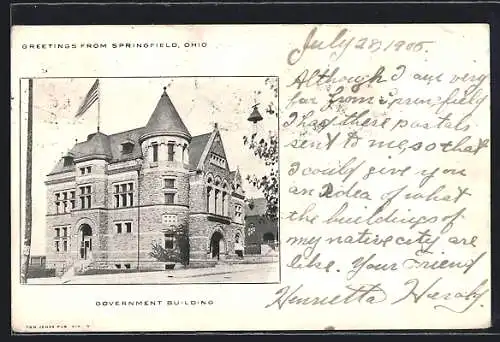 GREETINGS FROM SPRINGFIELD, OHIO
July 28, 1906.
Although I am very
far from Springfield
I had these postals
sent to me, so that
I could give you
an idea of what
the buildings of
my native city are
like. Your Friend
Henrietta
GOVERNMENT BUILDING